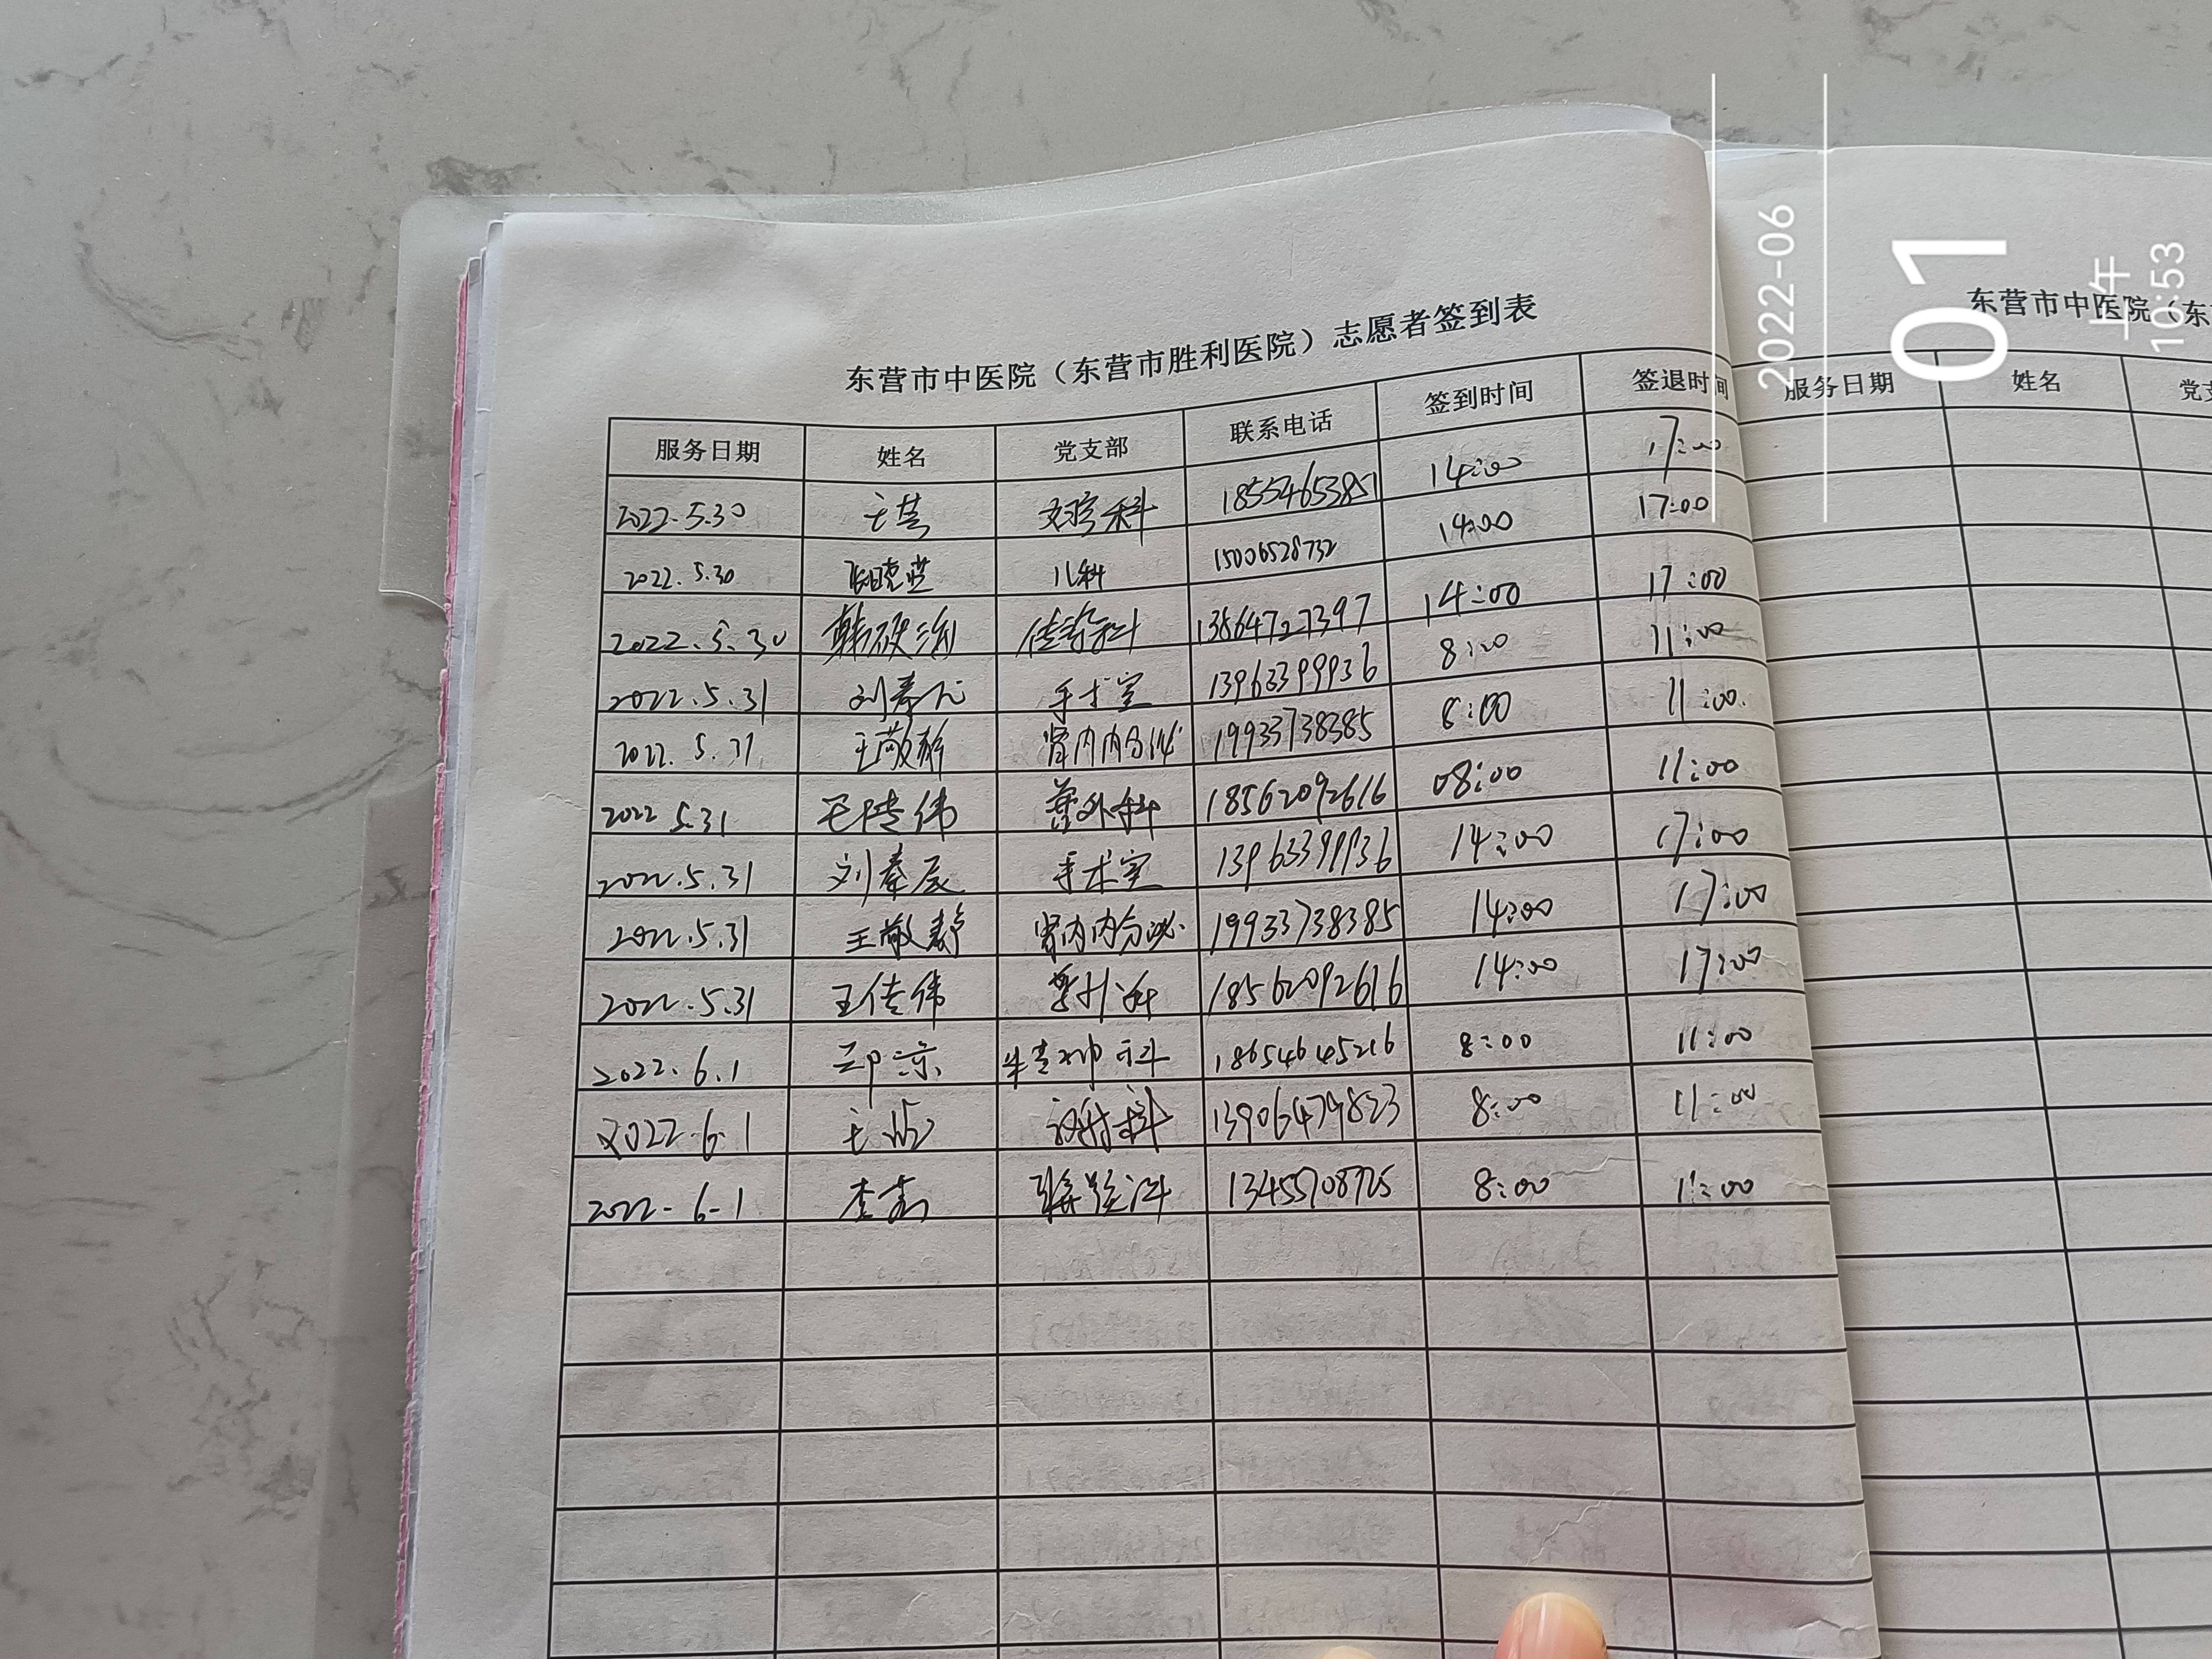 东营市中医院（东营市胜利医院）志愿者签到表
服务日期 姓名 党支部 联系电话 签到时间 签退时间
2022.5.30 18554653851 14:00 17:00
2022.5.30 张晓莹 儿科 15006528732 14:00 17:00
2022.5.30 13864727397 14:00 17:00
2022.5.31 刘奉辰 手术室 13963399936 8:00 11:00
2022.5.31 王敬静 肾内内分泌 19933738385 8:00 11:00.
2022 5.31 王佳伟 普外科 18562092616 08:00 11:00
2022.5.31 刘奉辰 手术室 13963399936 14:00 17:00
2022.5.31 王敬静 肾内内分泌. 19933738385 14:00 17:00
2022.5.31 王佳伟 普外科 18562092616 14:00 17:00
2022.6.1 18654645216 8:00 11:00
2022.6.1 放射科 13906479823 8:00 11:00
2022-6-1 13455708725 8:00 11:00
东营市中医院（东
服务日期 姓名 党支
2022-06
01
上午
10:53